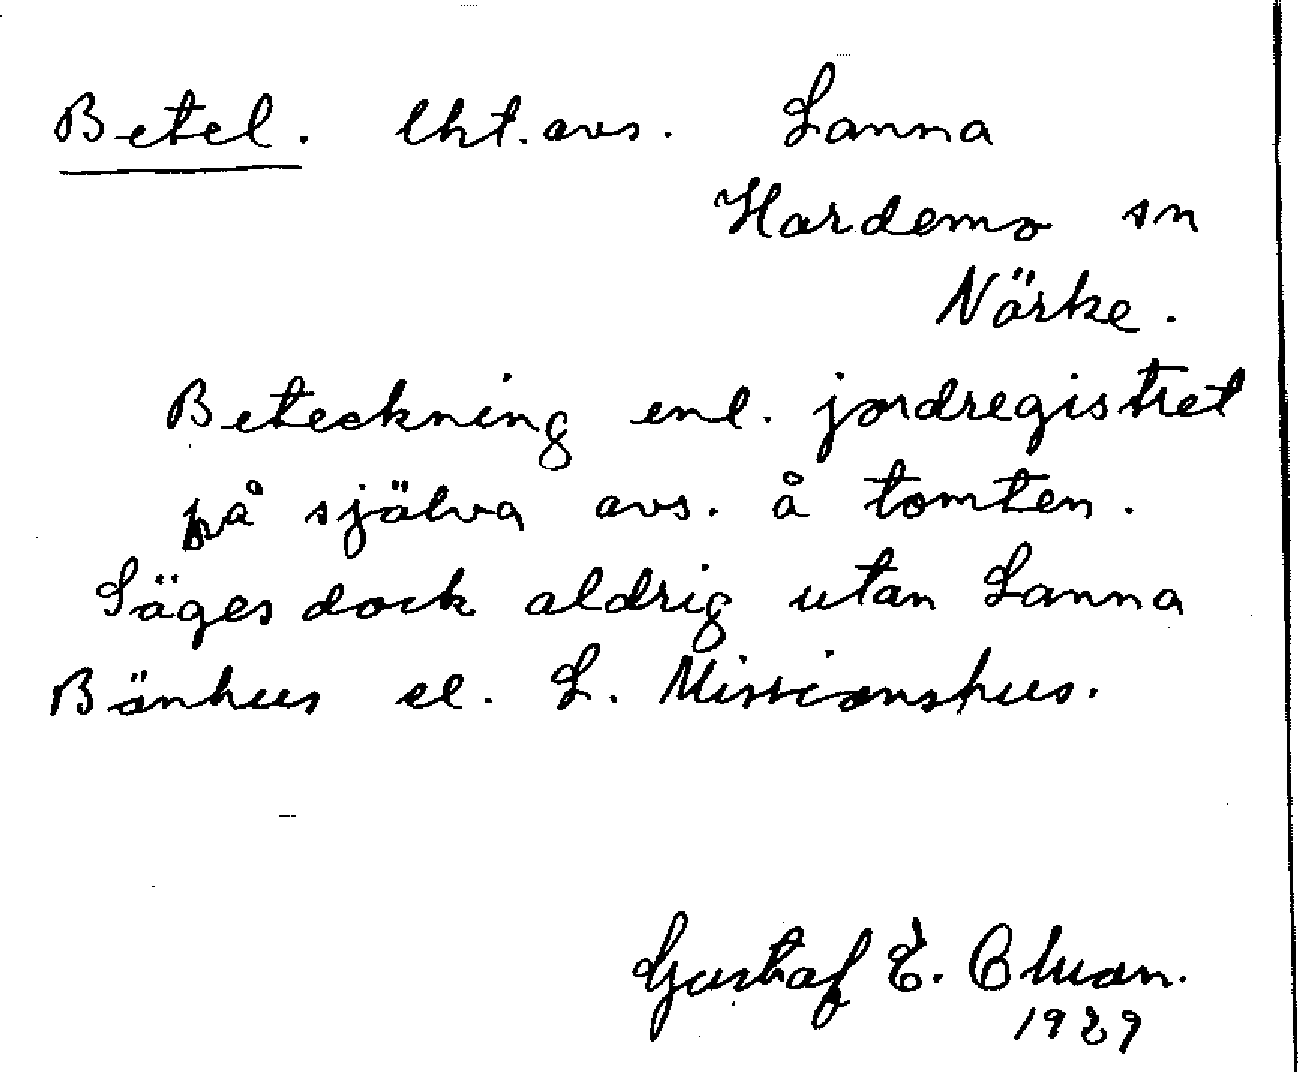 Betel. lht. avs. Lanna
Hardemo sn
Närke.
Beteckning enl. jordregistret
på själva avs. å tomten.
Säges dock aldrig utan Lanna
Bönhus el. L. Missionshus.
Gustaf E.
1929